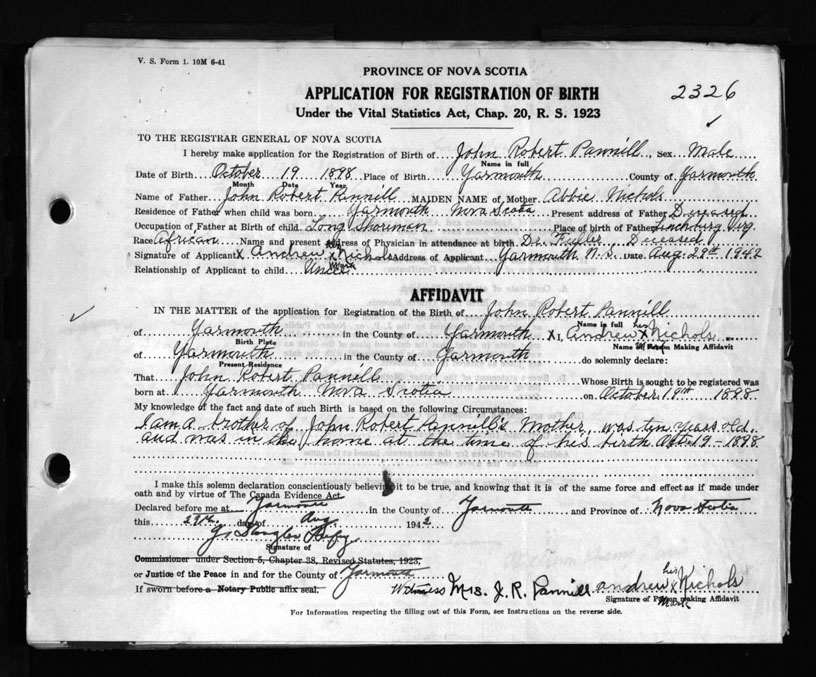 V. S. Form 1. 10M 6-41
PROVINCE OF NOVA SCOTIA
APPLICATION FOR REGISTRATION OF BIRTH
2326
Under the Vital Statistics Act, Chap. 20, R. S. 1923
TO THE REGISTRAR GENERAL OF NOVA SCOTIA
I hereby make application for the Registration of Birth of John Robert Pannill, Sex Male
Name in full
Date of Birth October 19 1898 Place of Birth Yarmouth County of Yarmouth
Month Date Year
Name of Father John Robert Pannill MAIDEN NAME of Mother Abbie Nichols
Residence of Father when child was born Yarmouth Nova Scotia Present address of Father Deceased
Occupation of Father at Birth of child Long Shoreman Place of birth of Father Lynchburg Virg
Race African Name and present address of Physician in attendance at birth Dr. Fuller Deceased
Signature of Applicant X Andrew X Nichols Address of Applicant Yarmouth N.S. Date Aug. 29th 1942
his
mark
Relationship of Applicant to child Uncle
AFFIDAVIT
IN THE MATTER of the application for Registration of the Birth of John Robert Pannill
Name in full
of Yarmouth in the County of Yarmouth X I, Andrew X Nichols
his
Birth Place
Name of Person Making Affidavit
of Yarmouth in the County of Yarmouth do solemnly declare:
Present Residence
That John Robert Pannill Whose Birth is sought to be registered was
born at Yarmouth Nova Scotia on October 19th 1898
My knowledge of the fact and date of such Birth is based on the following Circumstances:
I am a brother of John Robert Pannill's Mother, was ten years old
and was in the home at the time of his birth Octr 19-1898
I make this solemn declaration conscientiously believing it to be true, and knowing that it is of the same force and effect as if made under
oath and by virtue of The Canada Evidence Act
Declared before me at Yarmouth in the County of Yarmouth and Province of Nova Scotia
this day of Aug 1942
Signature of
Commissioner under Section 5, Chapter 38, Revised Statutes, 1923,
or Justice of the Peace in and for the County of Yarmouth
If sworn before a Notary Public affix seal.
Witness Mrs. J. R. Pannill Andrew X Nichols
his
mark
Signature of Person making Affidavit
For Information respecting the filling out of this Form, see Instructions on the reverse side.